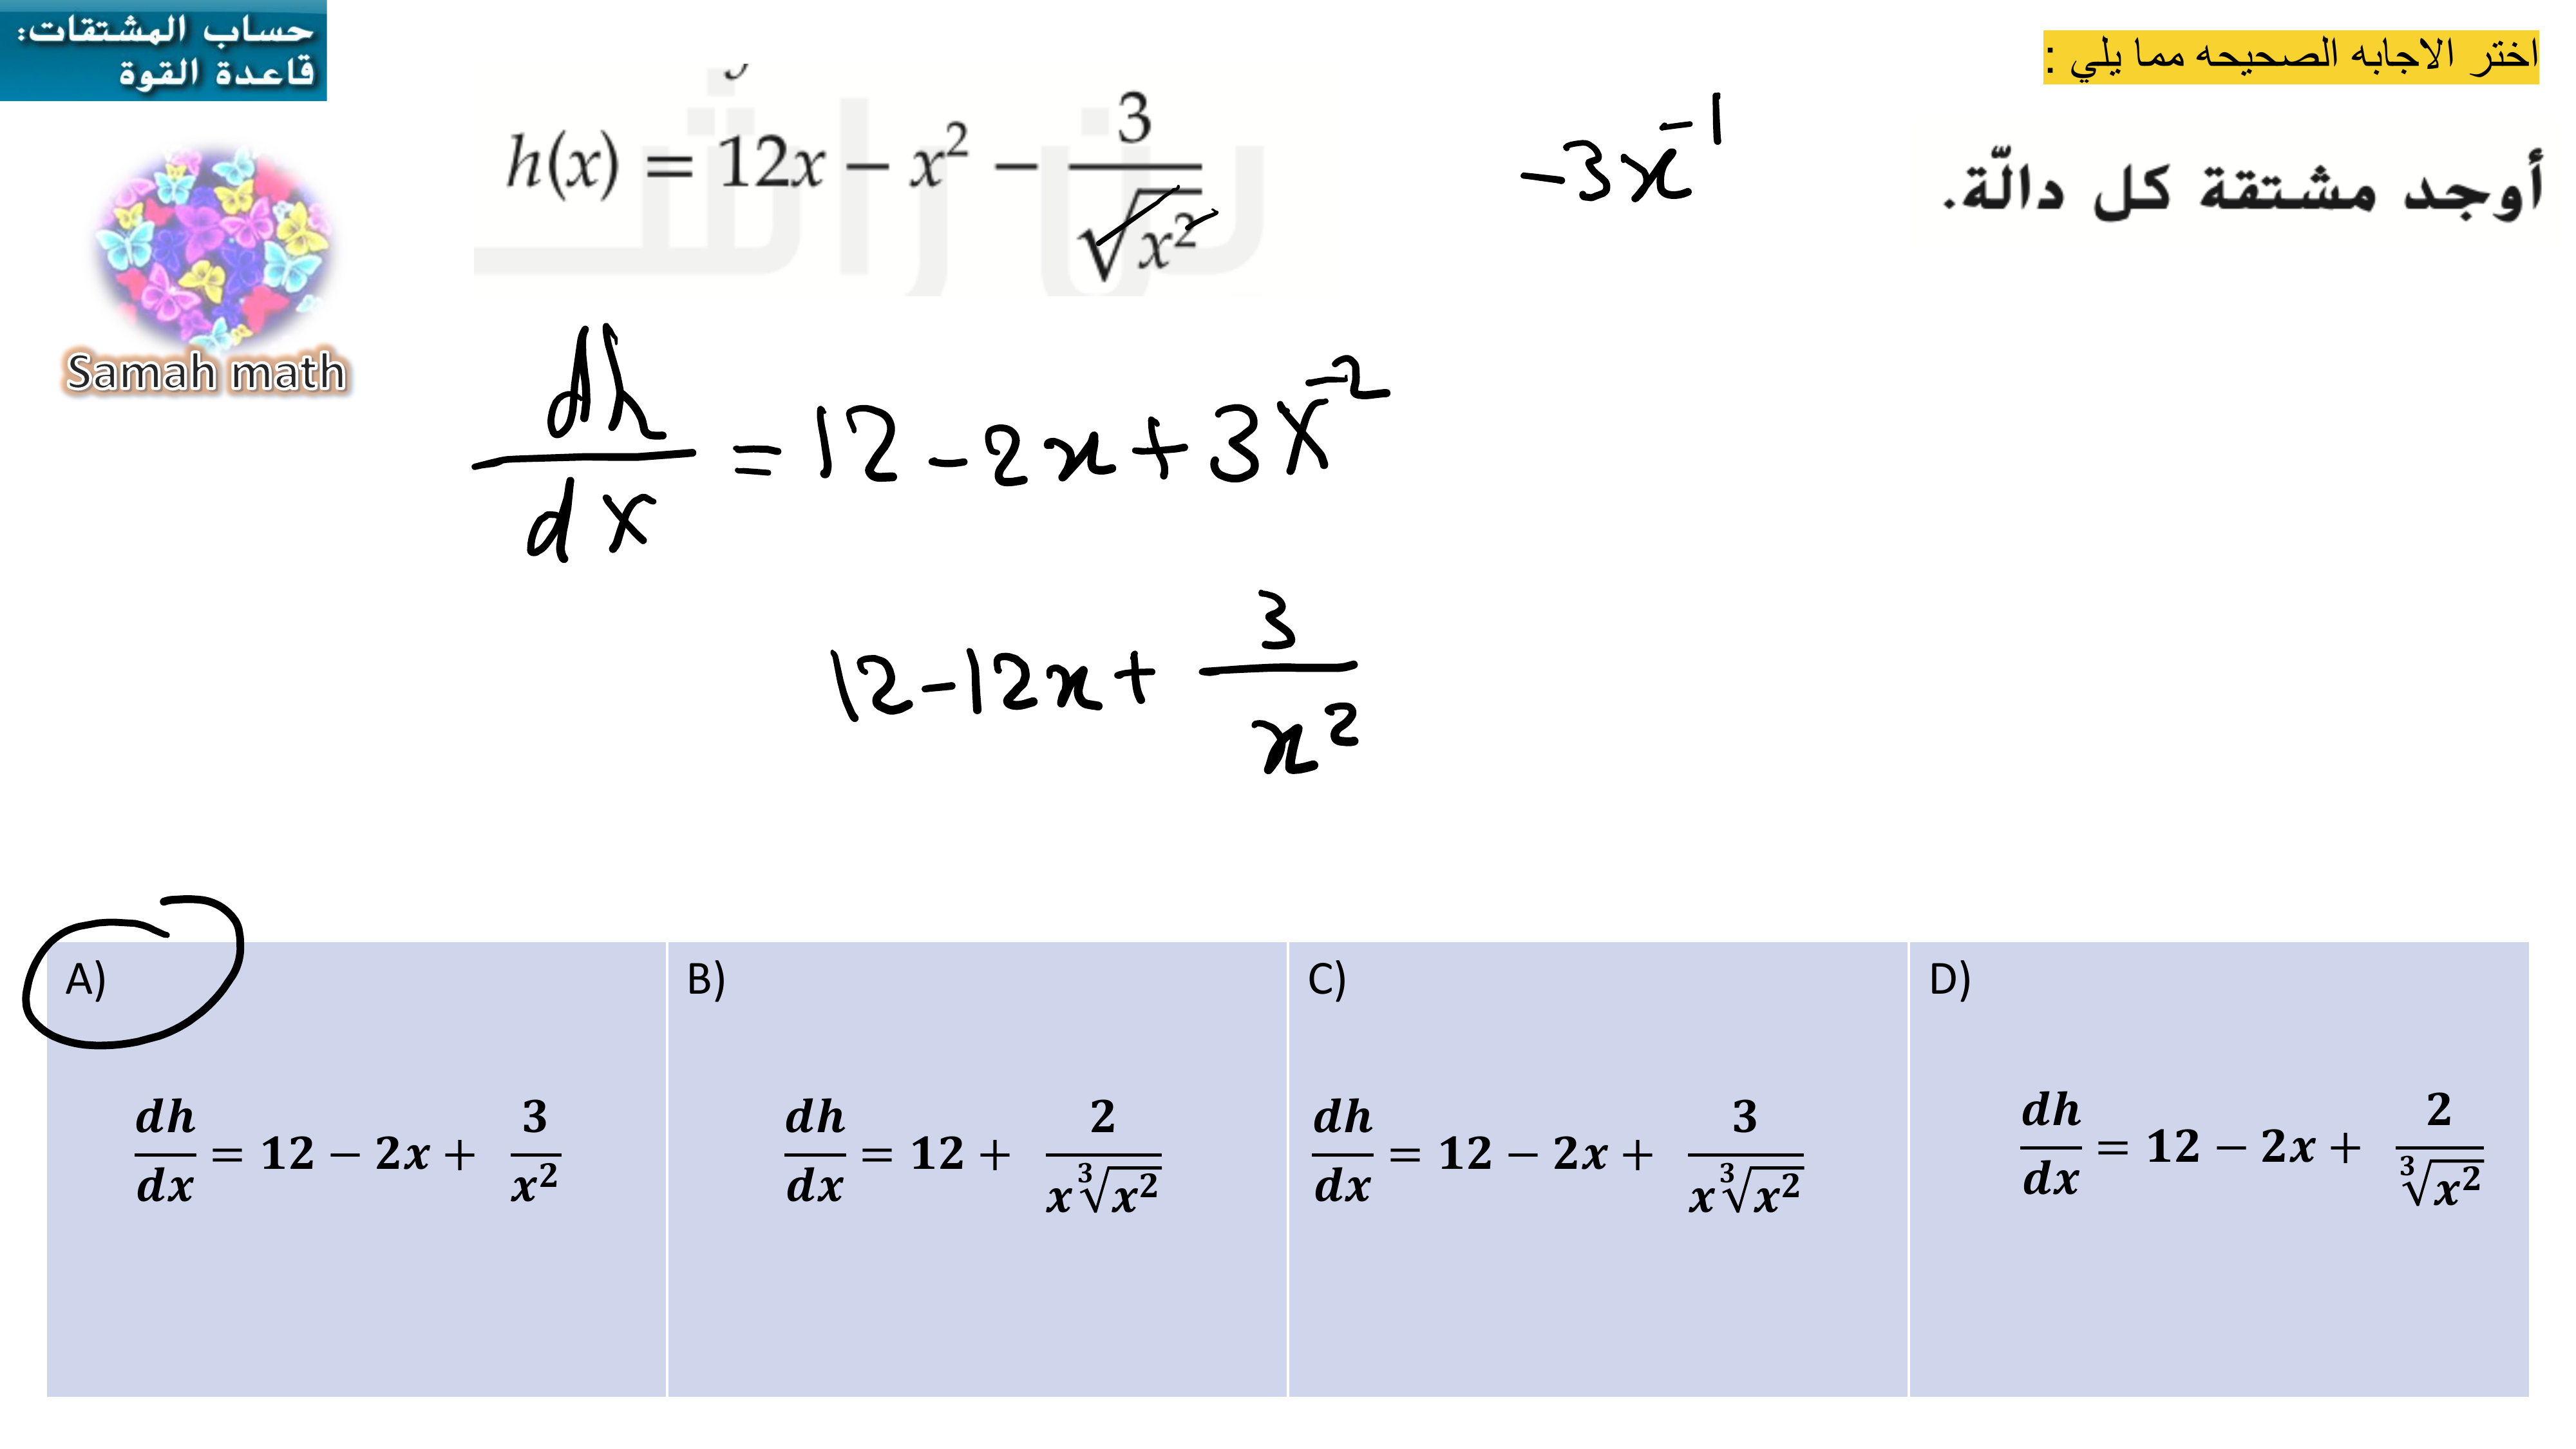 حساب المشتقات:
قاعدة القوة
اختر الاجابه الصحيحه مما يلي :
أوجد مشتقة كل دالّة.
h(x) = 12x − x² − 3/√x²
−3x⁻¹
Samah math
dh/dx = 12 − 2x + 3x⁻²
12 − 12x + 3/x²
A)
dh/dx = 12 − 2x + 3/x²
B)
dh/dx = 12 + 2/(x∛x²)
C)
dh/dx = 12 − 2x + 3/(x∛x²)
D)
dh/dx = 12 − 2x + 2/∛x²